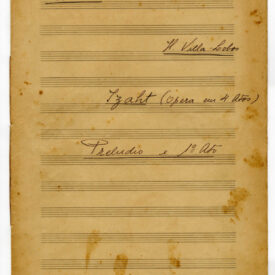 H. Villa-Lobos
Izaht (opera em 4 Atos)
Preludio e 1º Ato